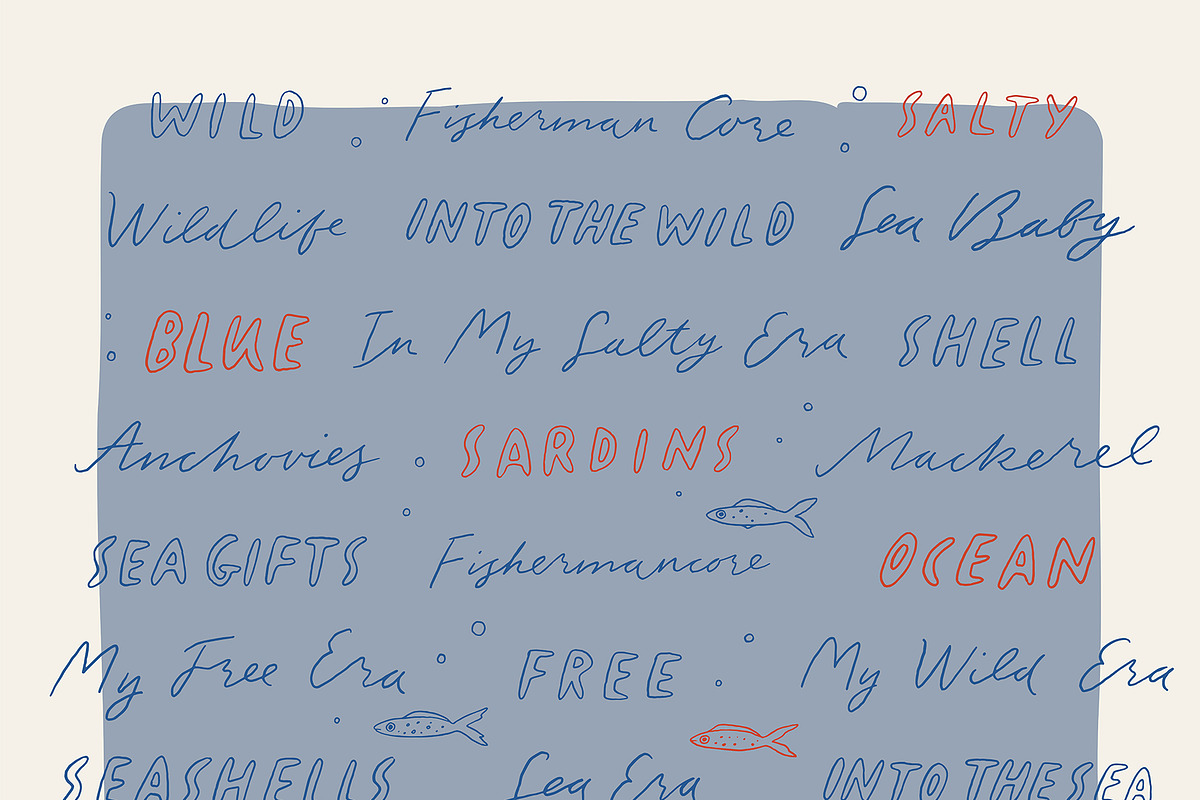 WILD Fisherman Core SALTY
Wildlife INTO THE WILD Sea Baby
BLUE In My Salty Era SHELL
Anchovies SARDINS Mackerel
SEA GIFTS Fishermancore OCEAN
My Free Era FREE My Wild Era
SEASHELLS Sea Era INTO THE SEA